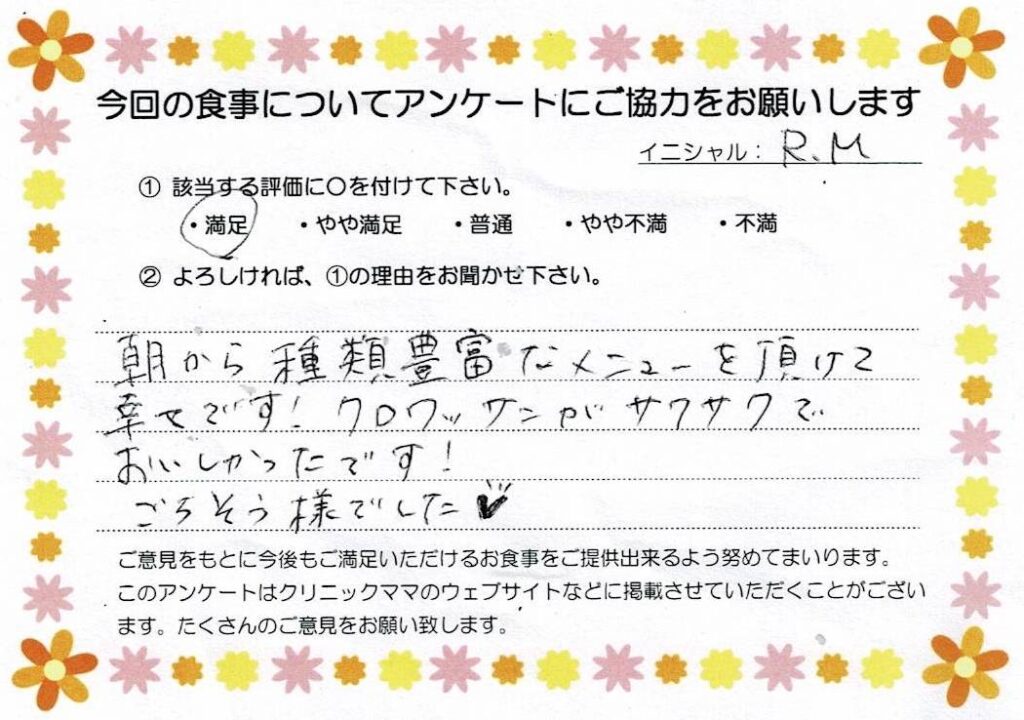 今回の食事についてアンケートにご協力をお願いします
イニシャル： R.M
① 該当する評価に○を付けて下さい。
・満足 ・やや満足 ・普通 ・やや不満 ・不満
② よろしければ、①の理由をお聞かせ下さい。
朝から種類豊富なメニューを頂けて
幸せです！クロワッサンがサクサクで
おいしかったです！
ごちそう様でした♥
ご意見をもとに今後もご満足いただけるお食事をご提供出来るよう努めてまいります。
このアンケートはクリニックママのウェブサイトなどに掲載させていただくことがござい
ます。たくさんのご意見をお願い致します。